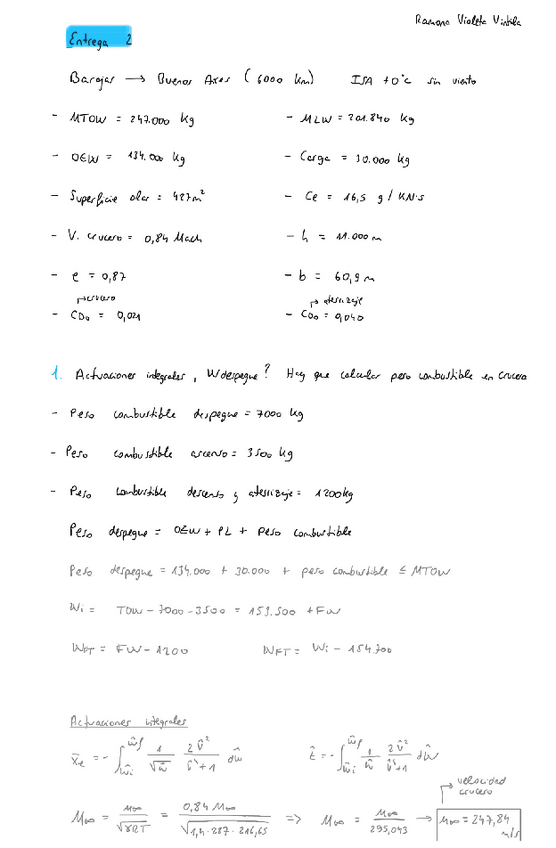 Ramona Violeta Vintila
Entrega 2
Barajas → Buenos Aires (6000 km) ISA +0°C sin viento
- MTOW = 247.000 kg - MLW = 201.840 kg
- OEW = 134.000 kg - Carga = 30.000 kg
- Superficie alar = 427m² - Ce = 16,5 g/KN·s
- V. crucero = 0,84 Mach - h = 11.000 m
- e = 0,87 - b = 60,9 m
crucero aterrizaje
- CD₀ = 0,021 - CD₀ = 0,040
1. Actuaciones integrales, W despegue? Hay que calcular peso combustible en crucero
- Peso combustible despegue = 7000 kg
- Peso combustible ascenso = 3500 kg
- Peso combustible descenso y aterrizaje = 1200kg
Peso despegue = OEW + PL + Peso combustible
Peso despegue = 134.000 + 30.000 + peso combustible ≤ MTOW
Wi = TOW - 7000 - 3500 = 153.500 + FW
WFT = FW - 1200 WFT = Wi - 154.700
Actuaciones integrales
x̂e = - ∫ŵi^ŵf 1/√ŵ 2v̂²/v̂⁴+1 dŵ t̂ = - ∫ŵi^ŵf 1/ŵ 2v̂²/v̂⁴+1 dŵ
velocidad
crucero
M∞ = μ∞/√γRT = 0,84 M∞/√1,4·287·216,65 => M∞ = μ∞/295,043 → μ∞ = 247,84
m/s